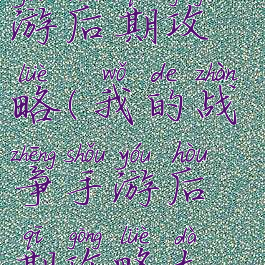 游后期攻
lüè wǒ de zhàn
略(我的战
zhēng shǒu yóu hòu
争手游后
qī gōng lüè dà
期攻略大